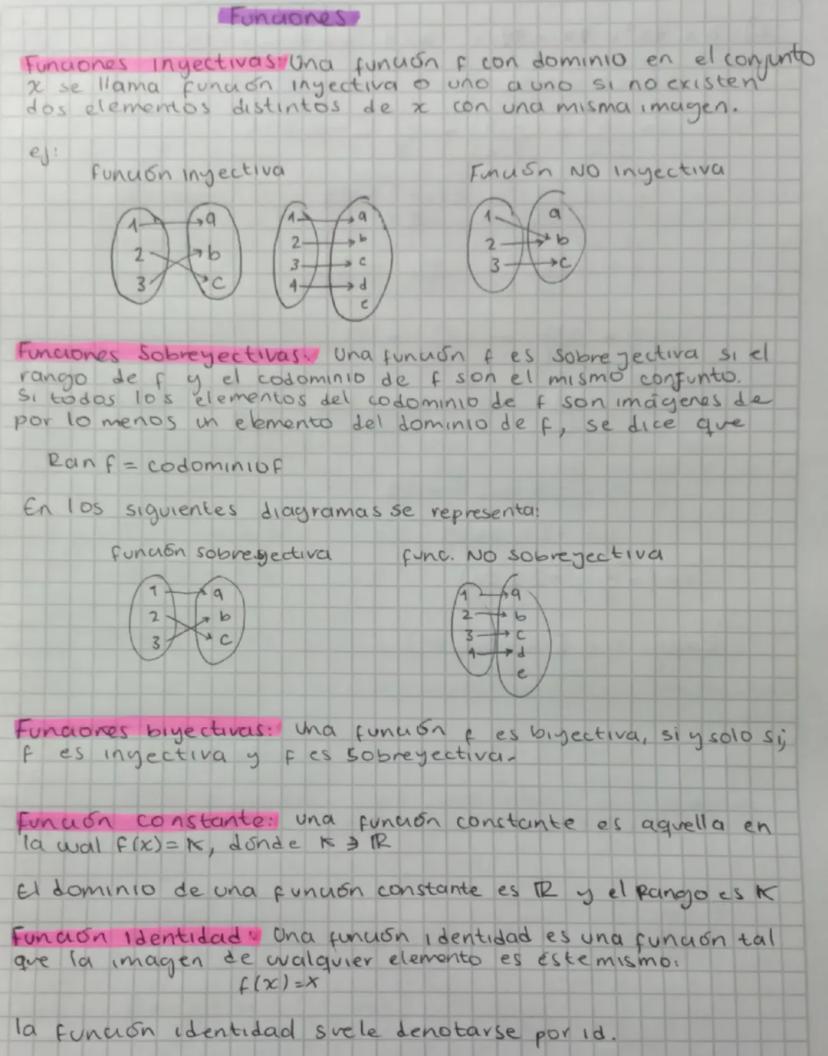 Funciones
Funciones inyectivas: Una función f con dominio en el conjunto
x se llama función inyectiva o uno a uno si no existen
dos elementos distintos de x con una misma imagen.
ej:
función inyectiva Función NO inyectiva
1 a 1 a 1 a
2 b 2 b 2 b
3 c 3 c 3 c
4 d
e
Funciones Sobreyectivas: Una función f es sobreyectiva si el
rango de f y el codominio de f son el mismo conjunto.
Si todos los elementos del codominio de f son imágenes de
por lo menos un elemento del dominio de f, se dice que
Ran f = codominio f
En los siguientes diagramas se representa:
función sobreyectiva func. NO sobreyectiva
1 a 1 a
2 b 2 b
3 c 3 c
4 d
e
Funciones biyectivas: Una función f es biyectiva, si y solo si,
f es inyectiva y f es sobreyectiva.
Función constante: una función constante es aquella en
la cual f(x)=K, donde K ∋ ℝ
El dominio de una función constante es ℝ y el Rango es K
Función identidad: Una función identidad es una función tal
que la imagen de cualquier elemento es éste mismo:
f(x)=x
la función identidad suele denotarse por id.